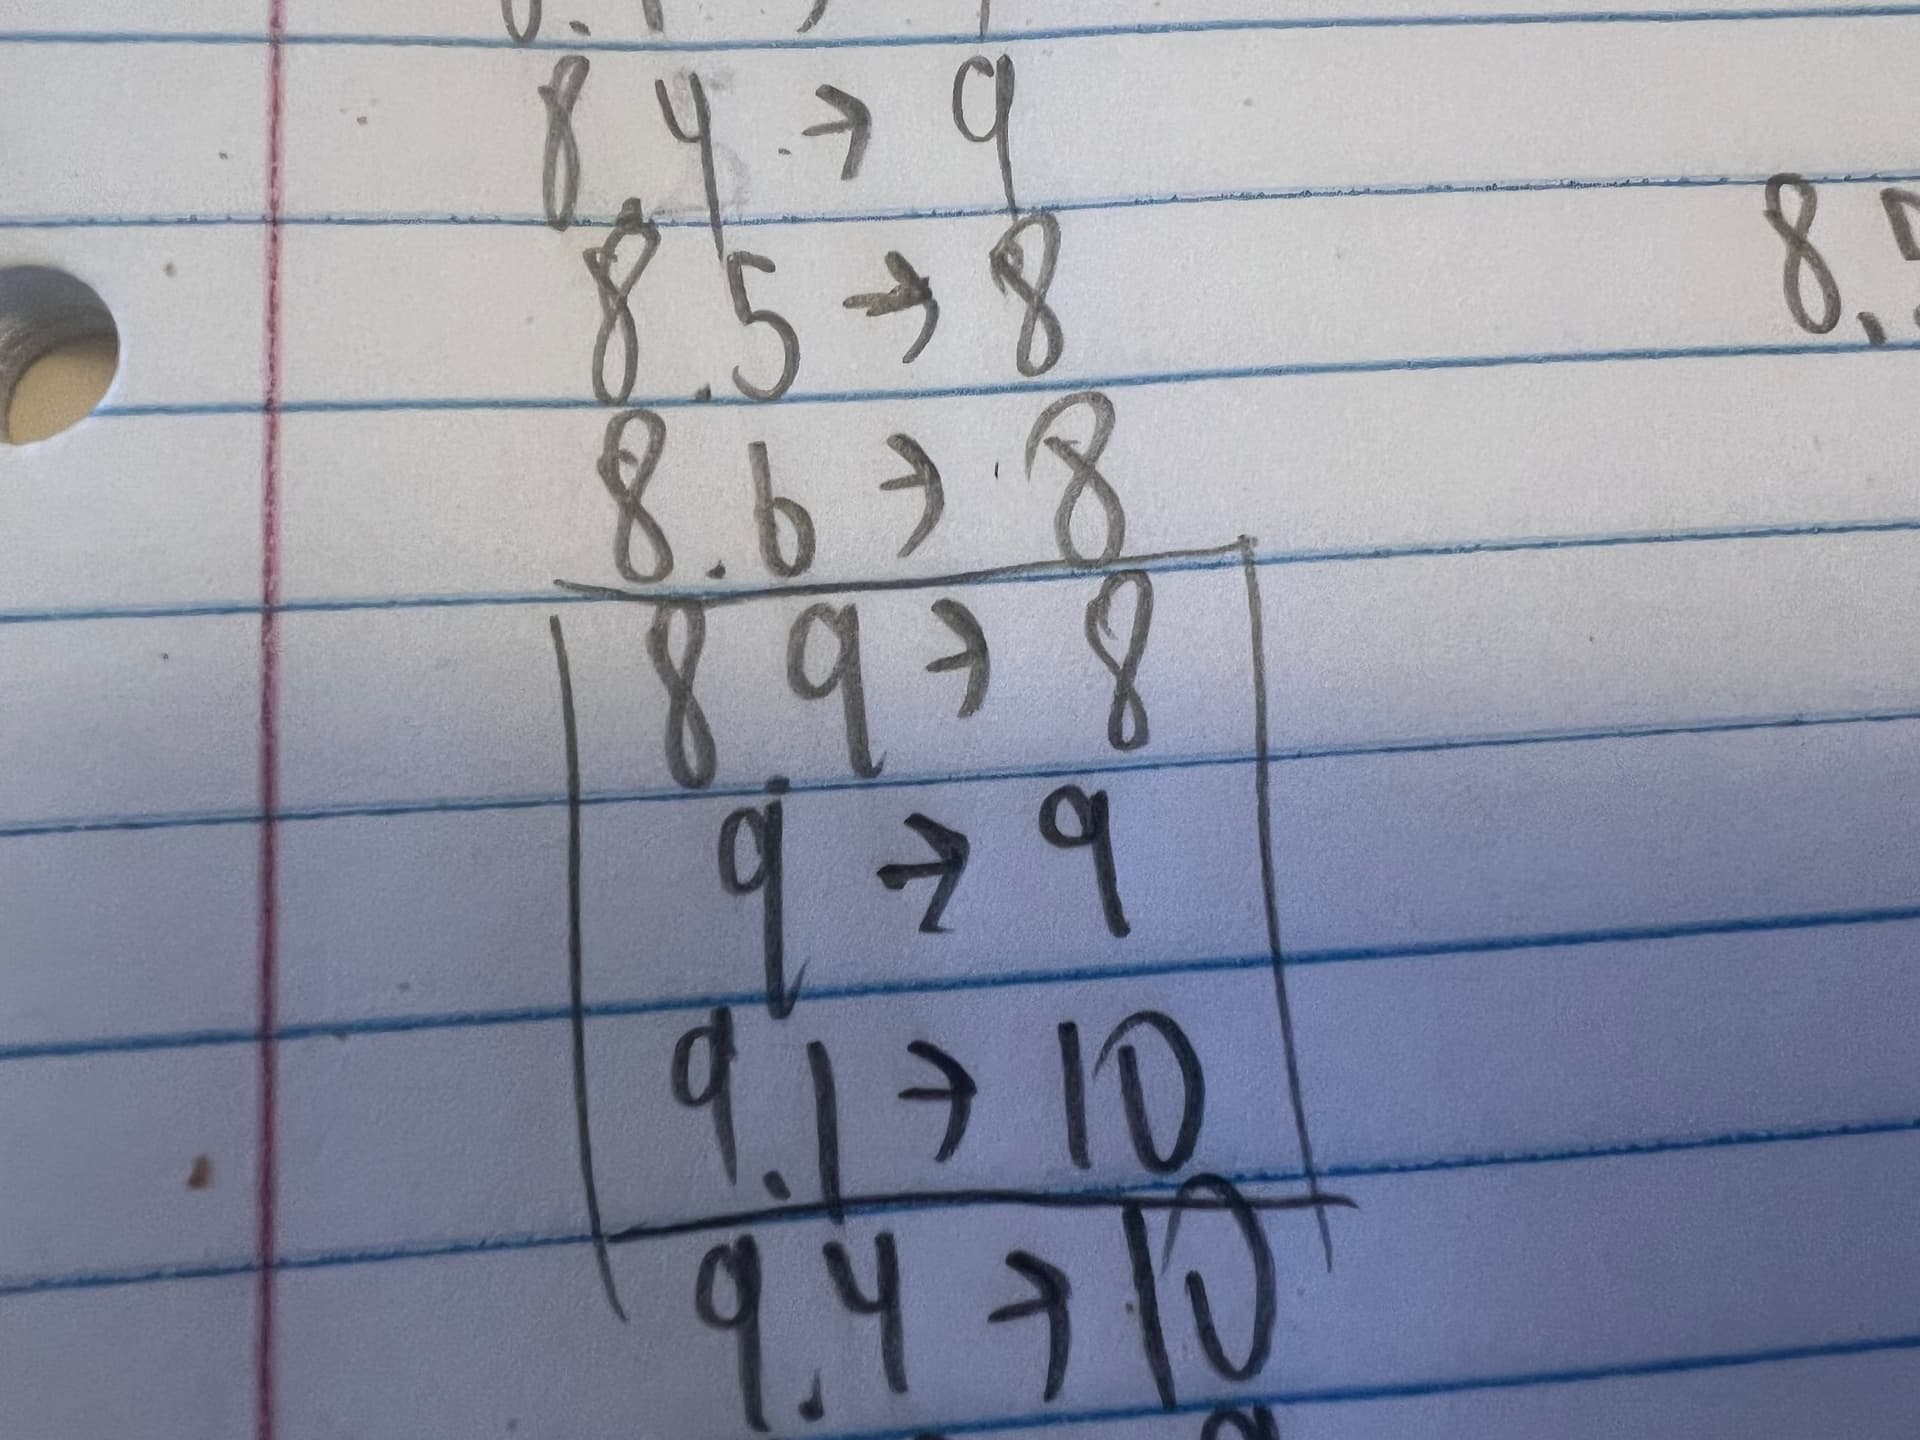 8.4 → 9
8.5 → 8
8.6 → 8
8.9 → 8
9 → 9
9.1 → 10
9.4 → 10